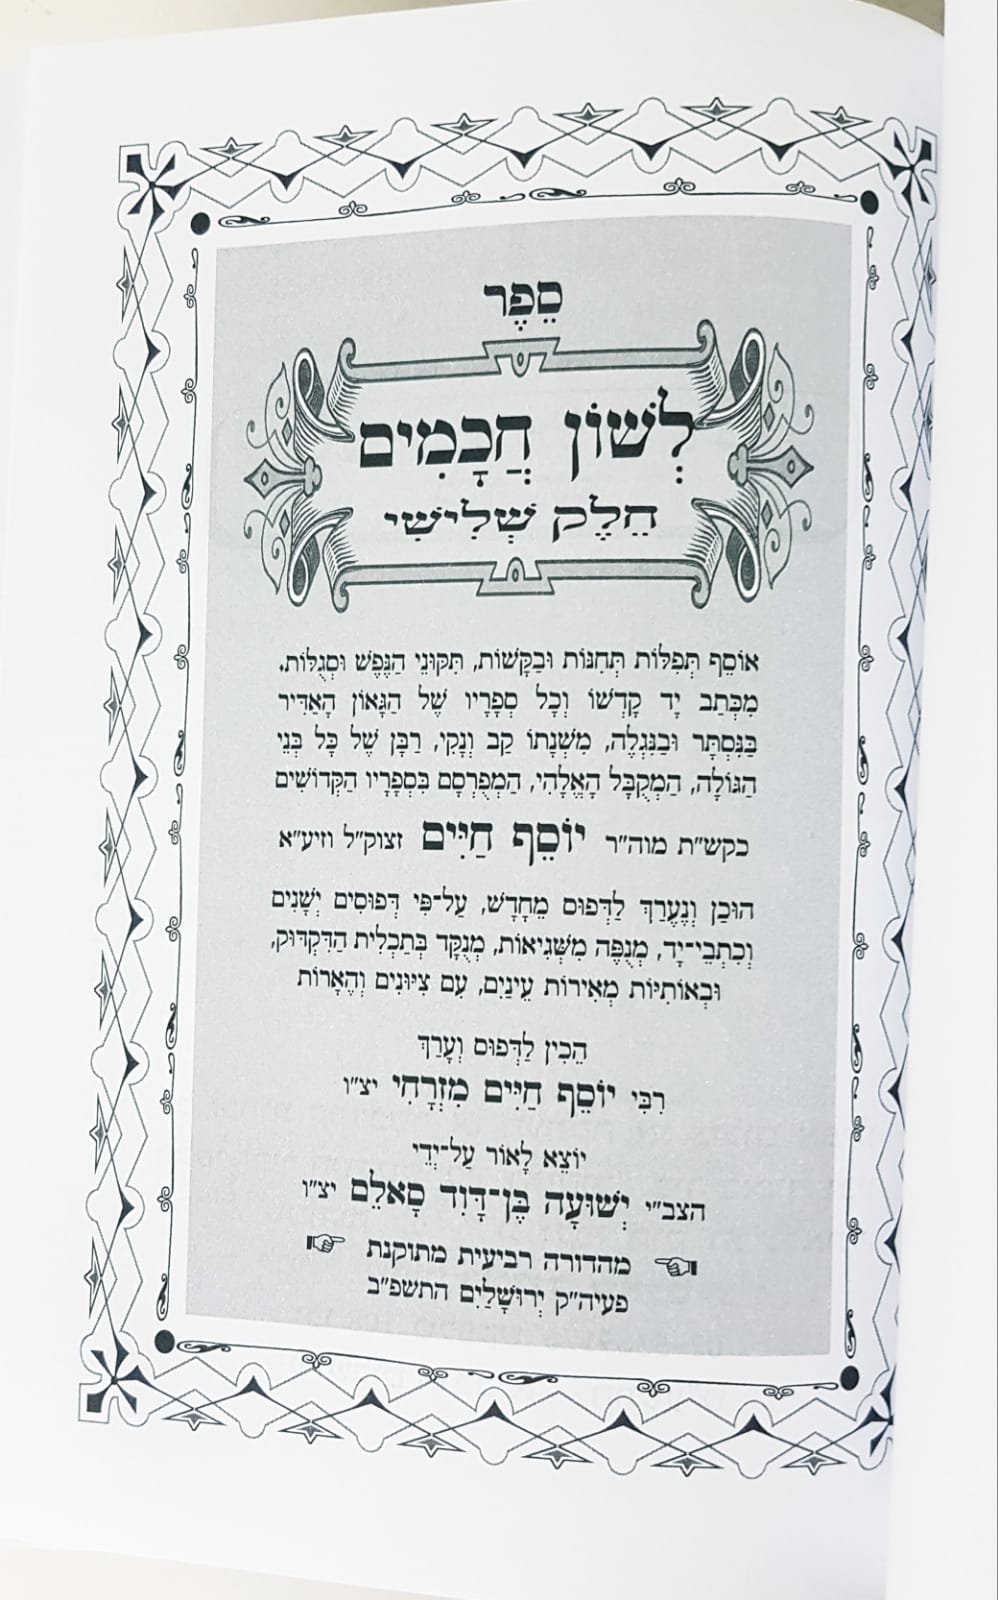 סֵפֶר
לְשׁוֹן חֲכָמִים
חֵלֶק שְׁלִישִׁי
אוֹסֵף תְּפִלּוֹת תְּחִנּוֹת וּבַקָּשׁוֹת, תִּקּוּנֵי הַנֶּפֶשׁ וּסְגֻלּוֹת.
מִכְּתַב יָד קָדְשׁוֹ וְכָל סְפָרָיו שֶׁל הַגָּאוֹן הָאַדִּיר
בַּנִּסְתָּר וּבַנִּגְלֶה, מִשְׁנָתוֹ קַב וְנָקִי, רַבָּן שֶׁל כָּל בְּנֵי
הַגּוֹלָה, הַמְקֻבָּל הָאֱלֹהִי, הַמְפֻרְסָם בִּסְפָרָיו הַקְּדוֹשִׁים
כקש"ת מוה"ר יוֹסֵף חַיִּים זצוק"ל וזיע"א
הוּכַן וְנֶעֱרַךְ לִדְפוּס מֵחָדָשׁ, עַל־פִּי דְּפוּסִים יְשָׁנִים
וְכִתְבֵי־יָד, מְנֻפֶּה מִשְּׁגִיאוֹת, מְנֻקָּד בְּתַכְלִית הַדִּקְדּוּק,
וּבְאוֹתִיּוֹת מְאִירוֹת עֵינַיִם, עִם צִיּוּנִים וְהֶאָרוֹת
הֵכִין לִדְפוּס וְעָרַךְ
רִבִּי יוֹסֵף חַיִּים מִזְרָחִי יצ"ו
יוֹצֵא לָאוֹר עַל־יְדֵי
הצב"י יְשׁוּעָה בֶּן־דָּוִד סָאלֵם יצ"ו
מהדורה רביעית מתוקנת
פעיה"ק יְרוּשָׁלַיִם התשפ"ב